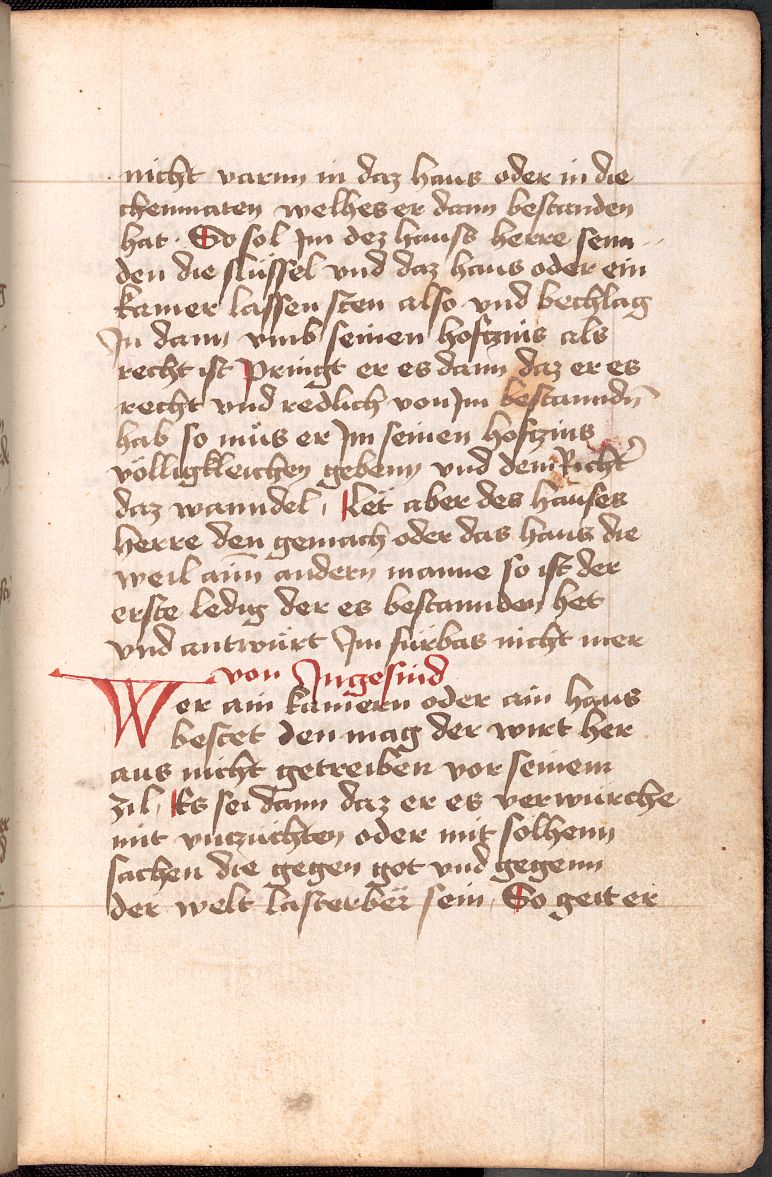 nicht varnn in daz haus oder in die
chemnaten welhes er dann bestanden
hat · So sol Jm dez hauss herre senn
den die slüssel vnd daz haus oder ein
kamer lassen sten also vnd bechlag
Jn dann vmb seinen hofczins als
recht ist Pringt er es dann daz er es
recht vnd redlich von Jm bestanndn̄
hab so müs er Jm seinen hofczins
völligkleichen gebenn vnd dem Richt̄
daz wanndel, Let aber des hauses
herre den gemach oder das haus die
weil aim̄ andern manne so ist der
erste ledig der es bestannden het
vnd antwürt Jm fürbas nicht mer
von Jngesind
Wer ain kamern oder ain haus
bestet den mag der wirt her
aus nicht getreiben vor seinem
zil, Es sei dann daz er es verwürche
mit vnczüchten oder mit solhenn
sachen die gegen got vnd gegenn
der welt lasterber̈ sein, So geit er